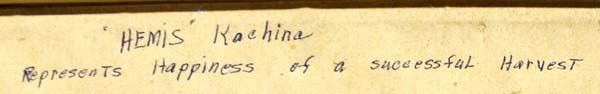 "HEMIS" Kachina
Represents Happiness of a successful Harvest